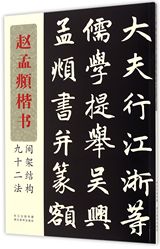 赵孟頫楷书
间架结构
九十二法
大夫行江浙等
儒學提舉吴興
孟頫書并篆額